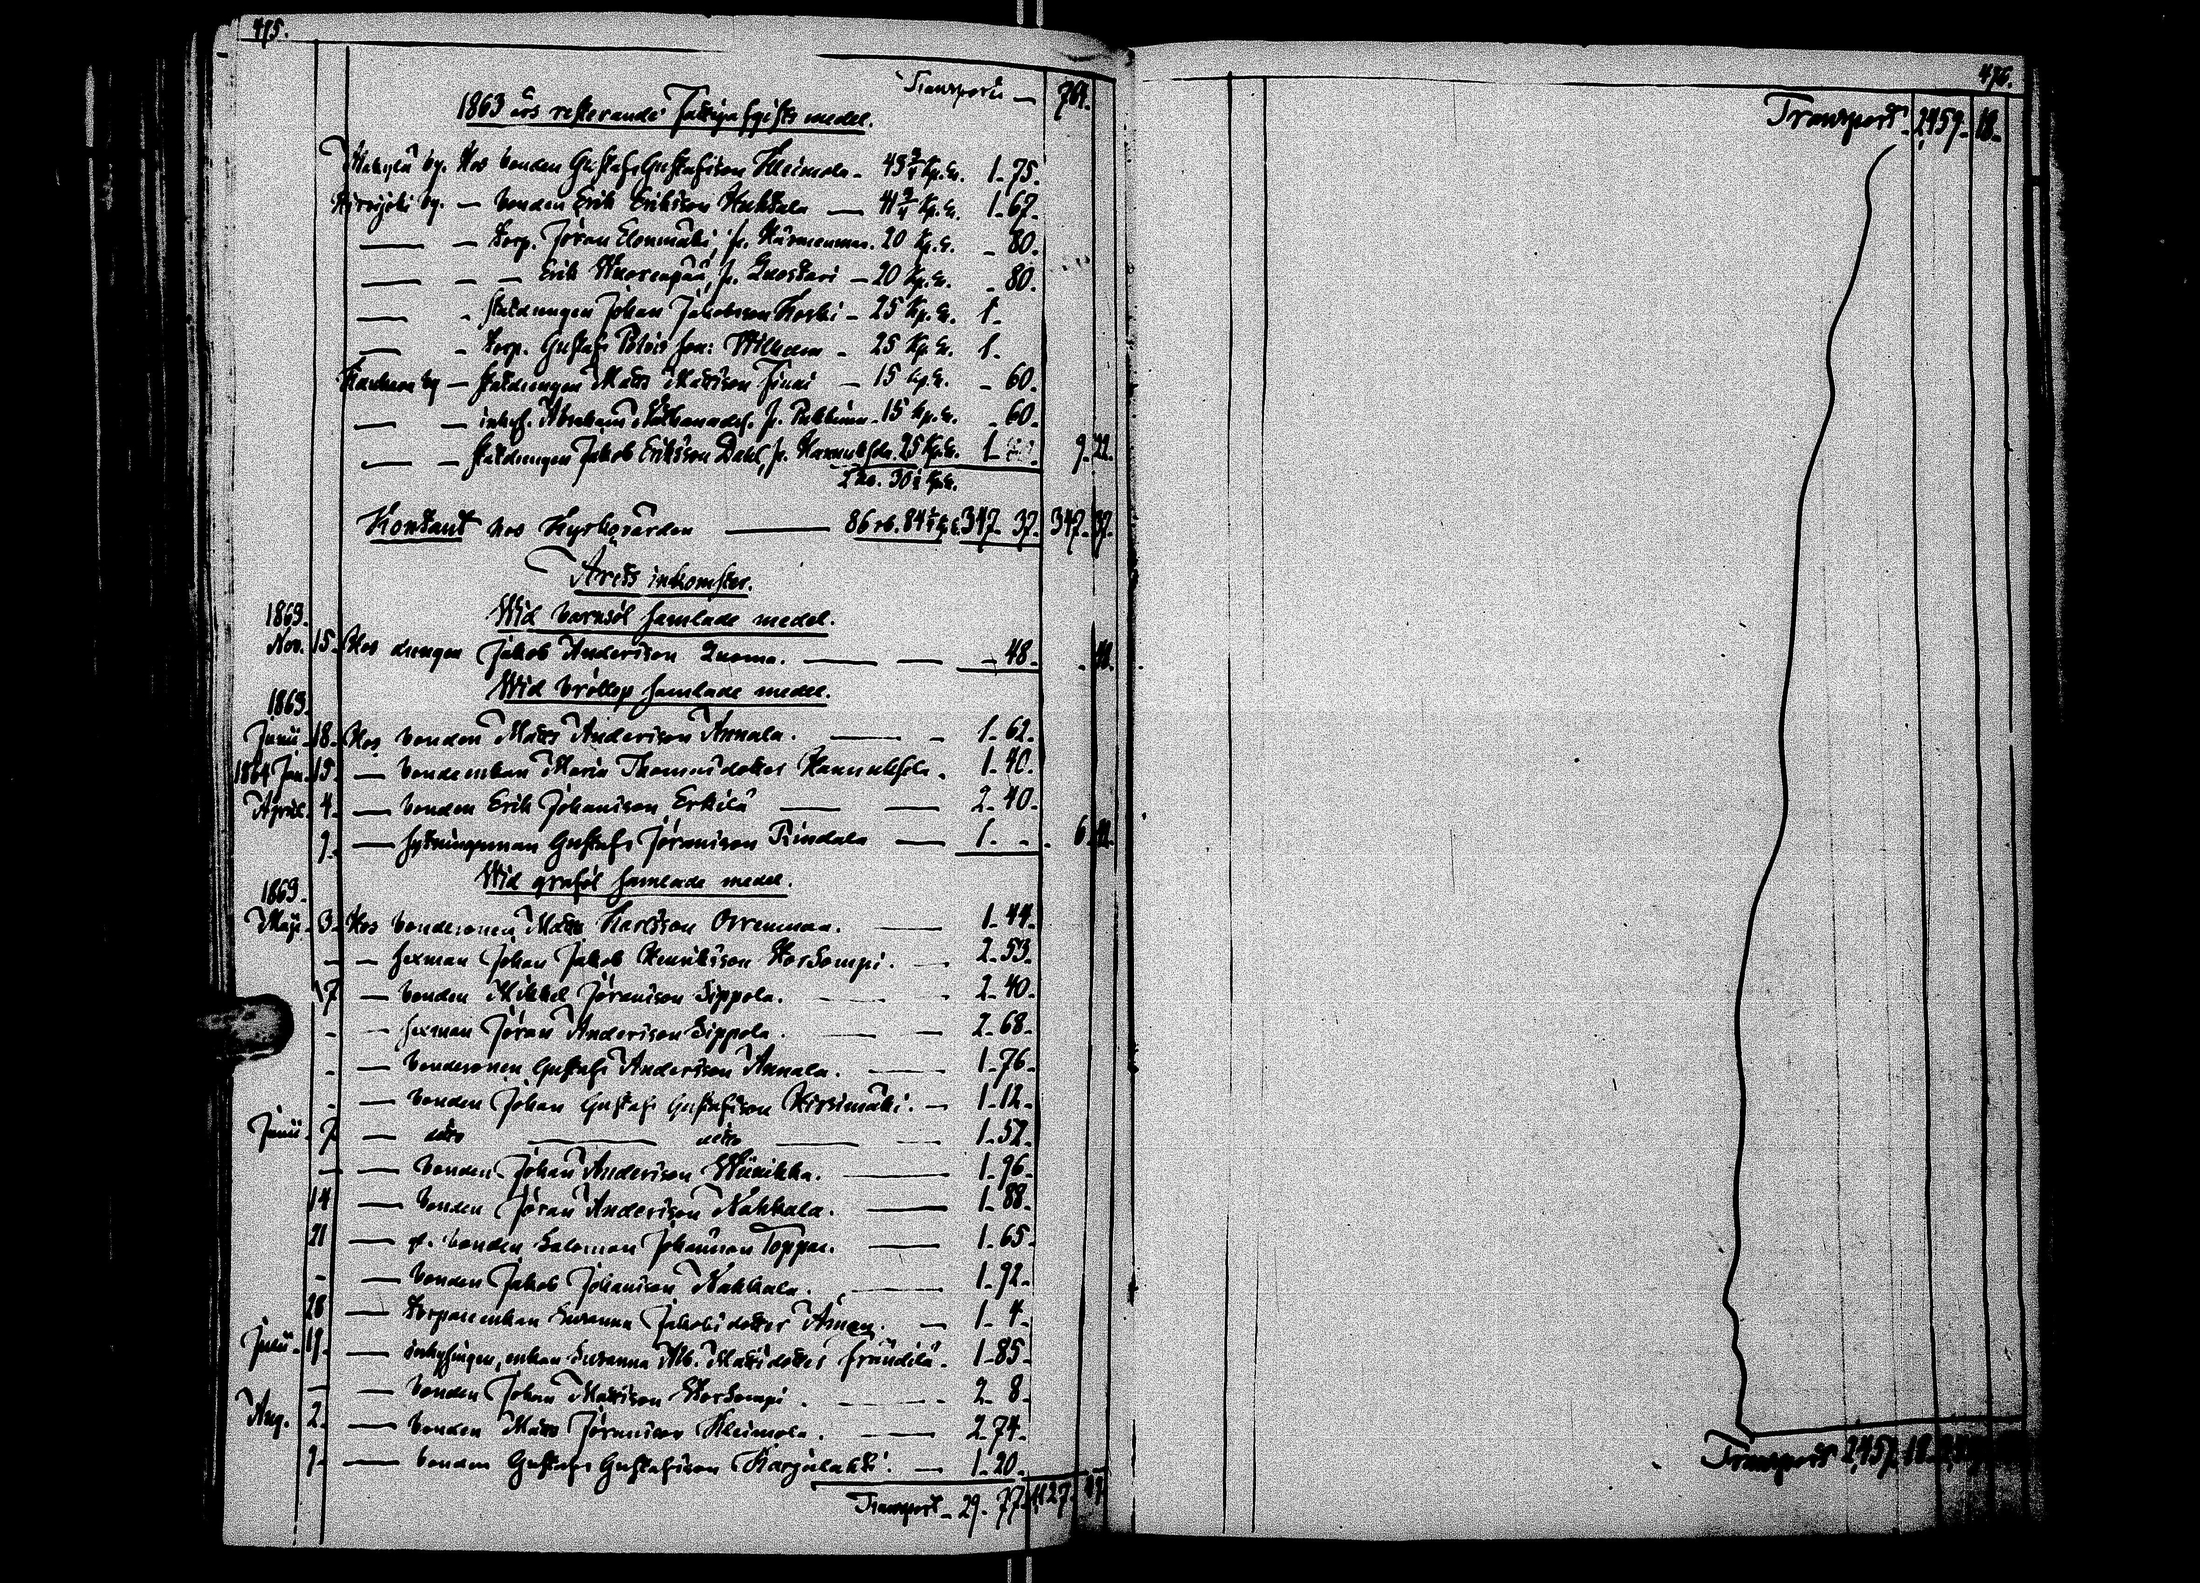 475.
Transport — 764.
1863 års resterande Fattigafgifts medel.
by. Hos bonden Gustaf Gustafsson Heimola - 43 3/4 Kop. S. 1. 75.
Hirvijoki by. — bonden Erik Eriksson Huhtala — 41 3/4 Kop. S. 1. 67.
— — torp. Jöran Elonmäki, p. 20 Kop. S. - 80.
— — — Erik Wuorenpää, p. Luostari — 20 Kop. S. - 80.
— - statdrengen Johan Jakobsson Koski - 25 Kop. S. 1.
— - torp. Gustafs son: Wilhelm - 25 Kop. S. 1.
by — statdrengen Matts Mattsson Finni — 15 Kop. S. - 60.
— — inhys. Abraham p. 15 Kop. S. - 60.
— — statdrengen Jakob Eriksson Dahl, p. Hannuksela 25 Kop. S. 1. 9. 22.
2 ro. 30 1/2 Kop. S.
Kontant hos Kyrkovärden — 86 rb. 84 1/4 K. S. 347. 37. 347. 37.
Årets inkomster.
Wid barnsöl samlade medel.
1863.
Nov. 15. Hos drengen Jakob Andersson Luoma. — — - 48. - 48.
Wid bröllop samlade medel.
1863.
Junii 18. Hos bonden Matts Andersson Annala. — - 1. 62.
1864 Jan. 15. — bondeenkan Maria Thomasdotter Hannuksela. 1. 40.
April. 4. — bonden Erik Johansson Erkilä — — 2. 40.
9. — sytningsman Gustaf Jöransson Rindala — 1. - . 6. 42.
Wid graföl samlade medel.
1863.
Maji. 3. Hos bondesonen Matts Karlsson Orrenmaa. — 1. 44.
- — sexman Johan Jakob Henriksson Workompi. — 2. 53.
17 — bonden Mikkel Jöransson Sippola. — — 2. 40.
- — sexman Jöran Andersson Sippola. — — 2. 68.
- — bondesonen Gustaf Andersson Annala. — 1. 76.
- — bonden Johan Gustaf Gustafsson Kirsimäki. — 1. 12.
Junii. 7. — dito — dito — — 1. 52.
— — bonden Johan Andersson Wiinikka. — 1. 96.
14 — bonden Jöran Andersson Nahkala. — 1. 88.
21 — f. bonden Salomon Johansson Toppar. — 1. 65.
- — bonden Jakob Johansson Nahkala. — 1. 92.
28 — torpareenkan Susanna Jakobsdotter Åman. — 1. 4.
Julii. 19. — inhysingen, enkan Susanna Alb. Mattsdotter Frändilä. 1. 85.
— — bonden Johan Mattsson Workompi. — 2. 8.
Aug. 2. — bonden Matts Jöransson Heimola. — 2. 74.
9. — bonden Gustaf Gustafsson Karjalahti. — 1. 20.
Transport — 29. 77. 1127.
476.
Transport. 2,459. 18.
Transport 2,459. 18.